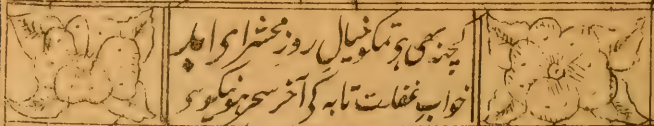 کچھ بھی ہے تمکو خیالِ روزِ محشر اے
خوابِ غفلت تا بہ کے آخر سحر ہونیکو ہے